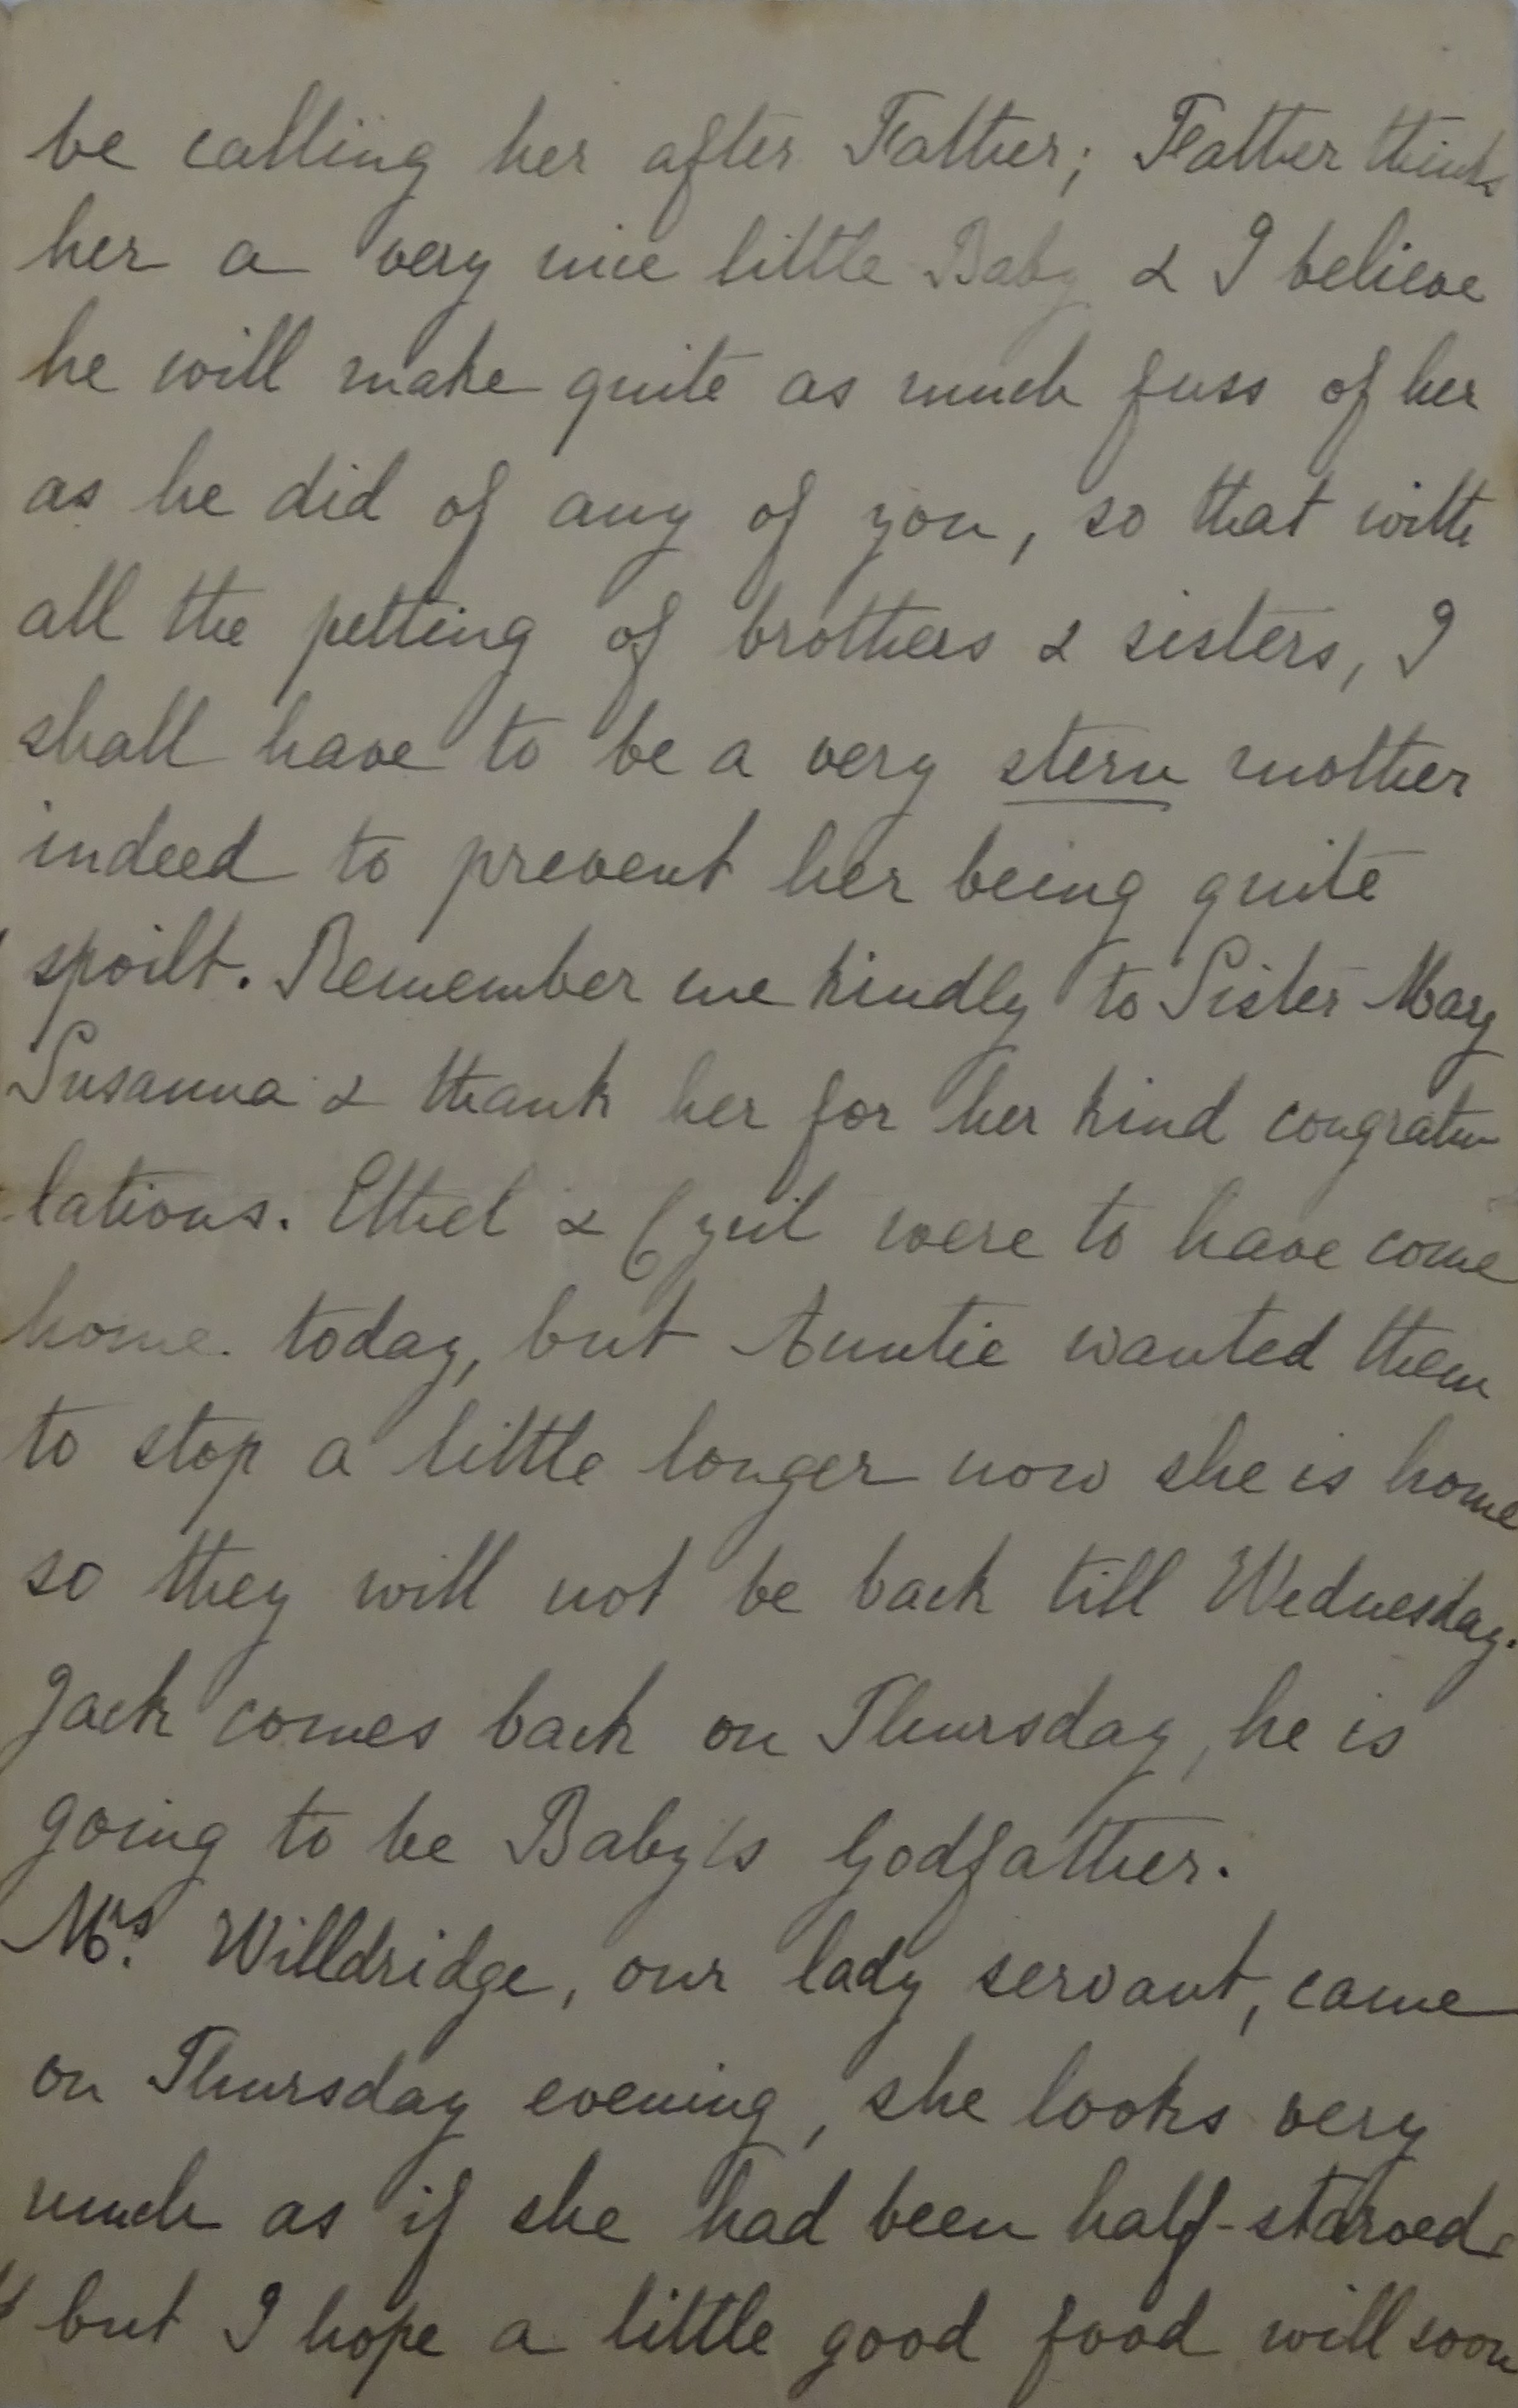 be calling her after Father; Father thinks
her a very nice little Baby & I believe
he will make quite as much fuss of her
as he did of any of you, so that with
all the petting of brothers & sisters, I
shall have to be a very stern mother
indeed to prevent her being quite
spoilt. Remember me kindly to Sister Mary
Susanna & thank her for her kind congratu
lations. Ethel & Cyril were to have come
home today, but Auntie wanted them
to stop a little longer now she is home
so they will not be back till Wednesday.
Jack comes back on Thursday, he is
going to be Baby's Godfather.
Mrs. Willdridge, our lady servant, came
on Thursday evening, she looks very
much as if she had been half-starved
but I hope a little good food will soon